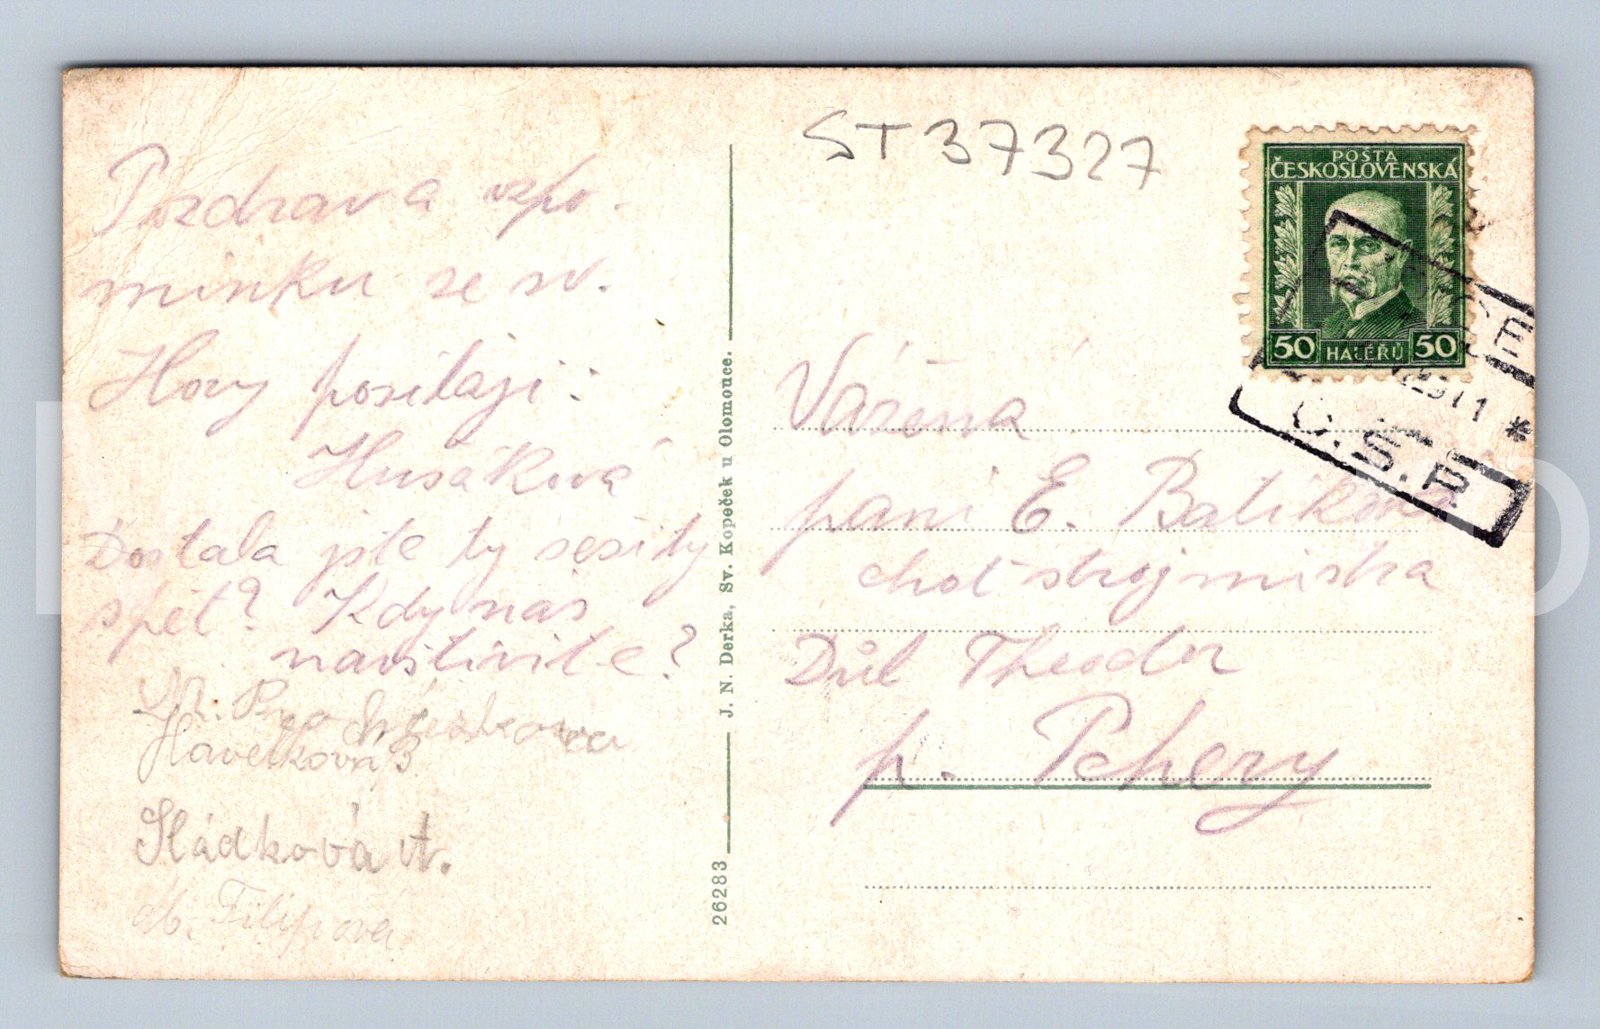 ST 37327
Pozdrav a vzpo-
mínku ze sv.
Hory posílají:
Husáková
Dostala jste ty sešity
zpět? Kdy nás
navštívíte?
Havelková B.
Sládková A.
M. Filipová
J. N. Derka, Sv. Kopeček u Olomouce.
26283
POŠTA
ČESKOSLOVENSKÁ
50 HALÉŘŮ 50
Č.S.P.
Vážená
paní E. Batíková
choť strojmistra
Důl Theodor
p. Pchery